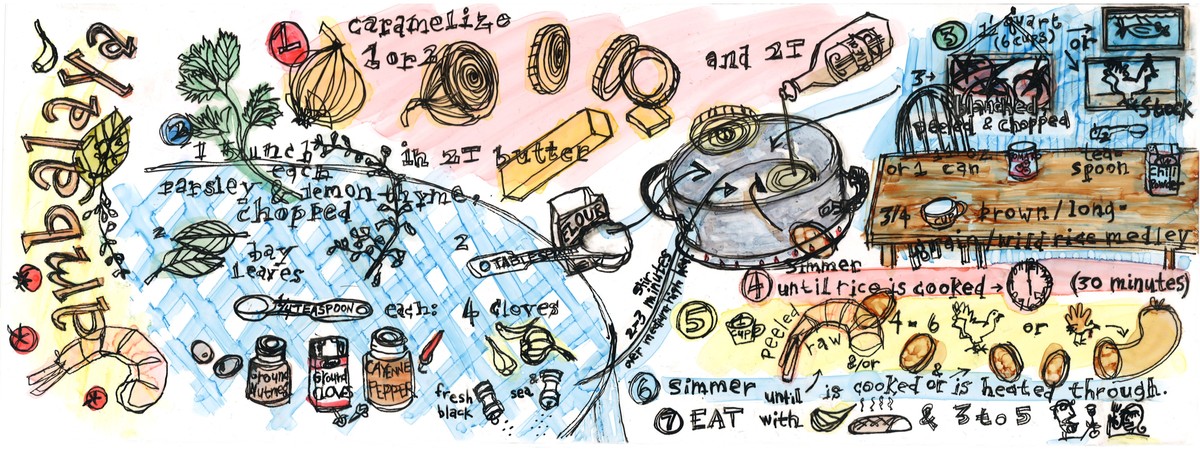 Jambalaya
1
caramelize
1 or 2
and 2T
in 2T butter
2
1 bunch
each
parsley & lemon thyme,
chopped
2
bay
leaves
2
TABLES
FLOUR
1/4 TEASPOON
each:
4 cloves
Ground
Nutmeg
Ground
CLOVES
CAYENNE
PEPPER
fresh
black
&
sea
Stir
2-3 minutes
over medium high heat
3
1 1/2 quart
(6 cups)
or
3→
blanched
peeled & chopped
stock
or 1 can
tea-
spoon
Chili
Powder
3/4
brown/long-
grain/wild rice medley
4
simmer
until rice is cooked →
(30 minutes)
5
1
CUP
peeled
raw
&/or
4-6
or
6
simmer until is cooked or is heated through.
7
EAT with
& 3 to 5